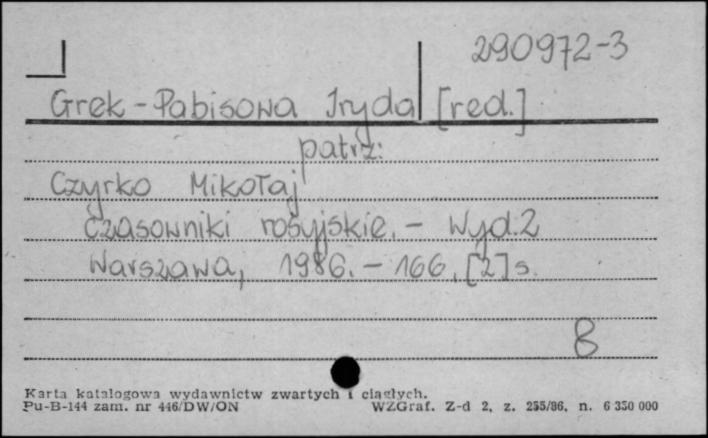 290972-3
Grek-Pabisowa Iryda [red.]
patrz:
Czyrko Mikołaj
Czasowniki rosyjskie. - Wyd. 2
Warszawa, 1986. - 166, [2] s.
B
Karta katalogowa wydawnictw zwartych i ciągłych.
Pu-B-144 zam. nr 446/DW/ON WZGraf. Z-d 2, z. 255/86, n. 6 350 000